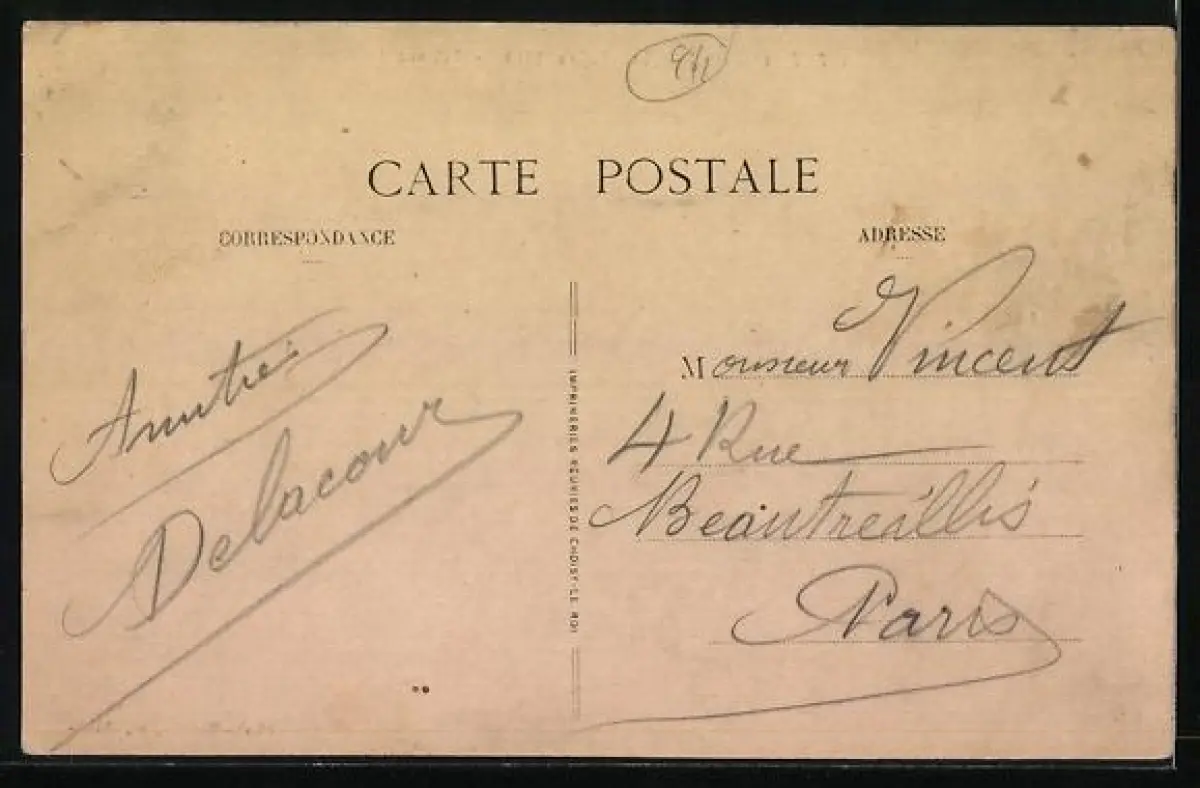 CARTE POSTALE
CORRESPONDANCE
Amitié
Delacour
IMPRIMERIES RÉUNIES DE CHOISY-LE-ROI
ADRESSE
Monsieur Vincent
4 Rue
Beautreillis
Paris